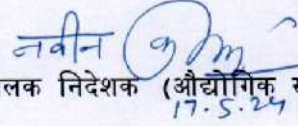 नवीन
लक निदेशक (औद्योगिक स
17.5.24